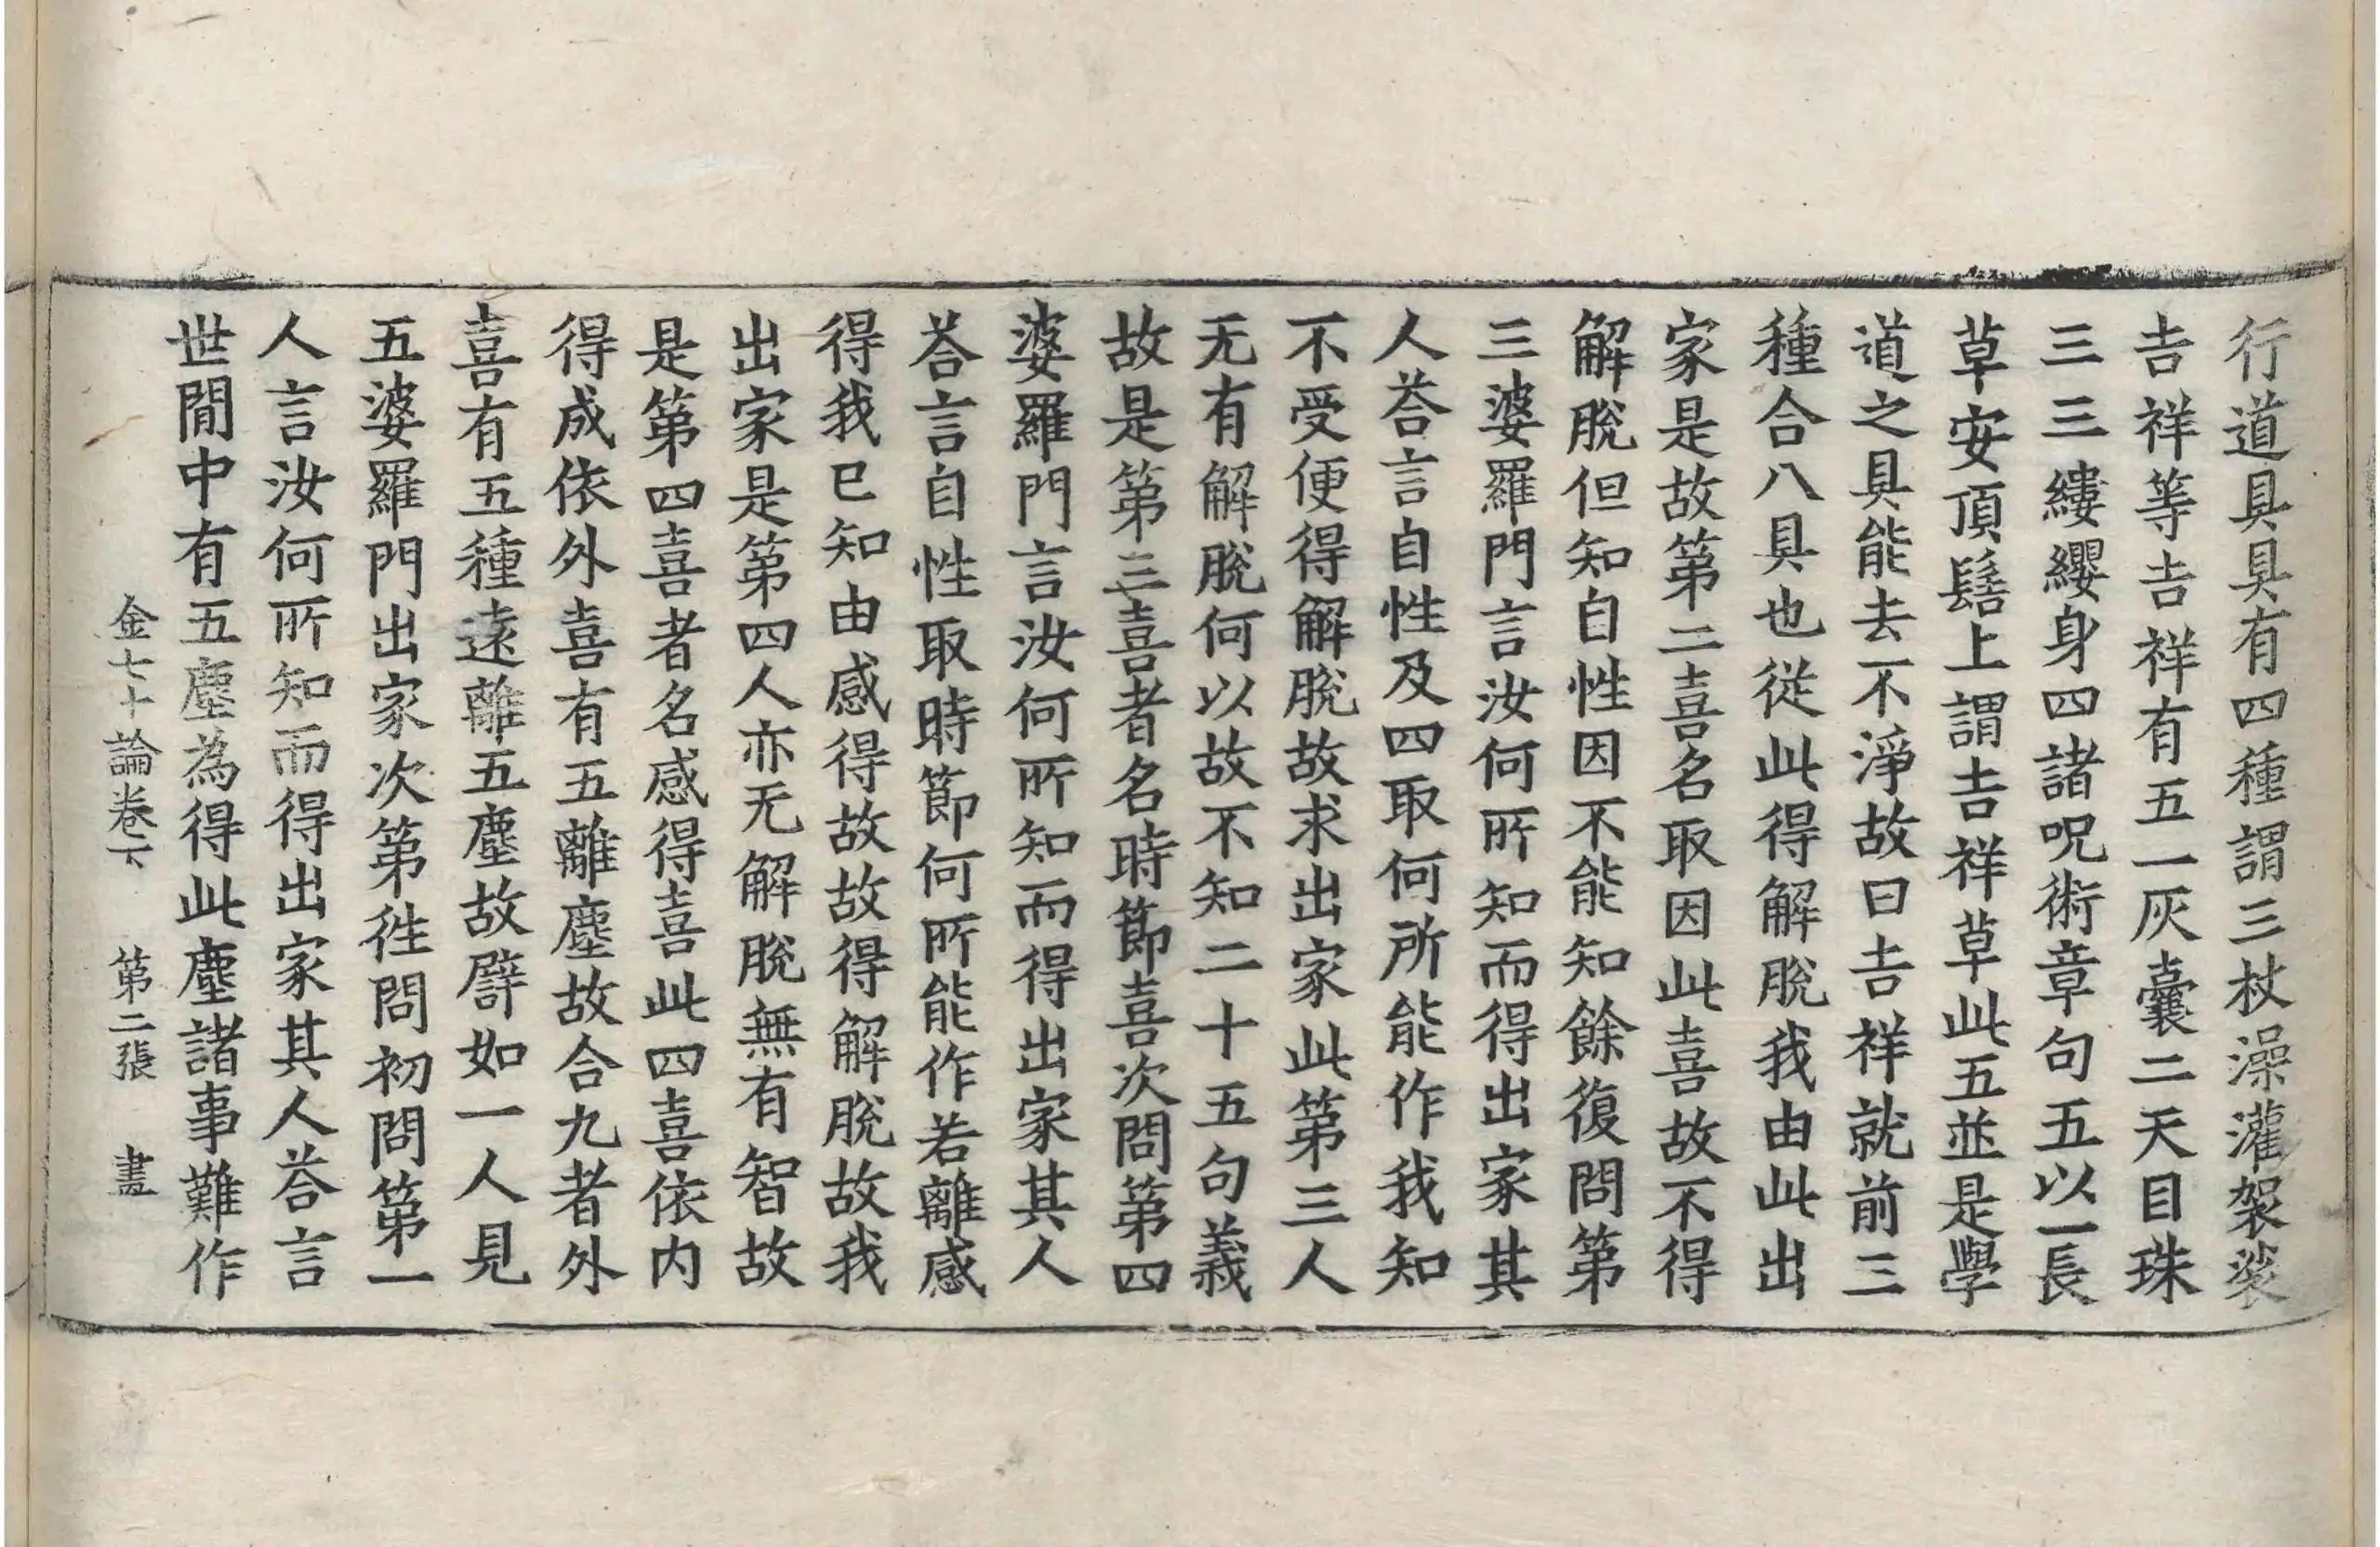 行道具具有四種謂三杖澡灌袈裟
吉祥等吉祥有五一灰囊二天目珠
三三縷纓身四諸呪術章句五以一長
草安頂髻上謂吉祥草此五並是學
道之具能去不淨故曰吉祥就前三
種合八具也從此得解脫我由此出
家是故第二喜名取因此喜故不得
解脫但知自性因不能知餘復問第
三婆羅門言汝何所知而得出家其
人荅言自性及四取何所能作我知
不受便得解脫故求出家此第三人
无有解脫何以故不知二十五句義
故是第三喜者名時節喜次問第四
婆羅門言汝何所知而得出家其人
荅言自性取時節何所能作若離感
得我已知由感得故故得解脫故我
出家是第四人亦无解脫無有智故
是第四喜者名感得喜此四喜依内
得成依外喜有五離塵故合九者外
喜有五種遠離五塵故譬如一人見
五婆羅門出家次第徃問初問第一
人言汝何所知而得出家其人荅言
世間中有五塵為得此塵諸事難作
金七十論卷下 第二張 畫